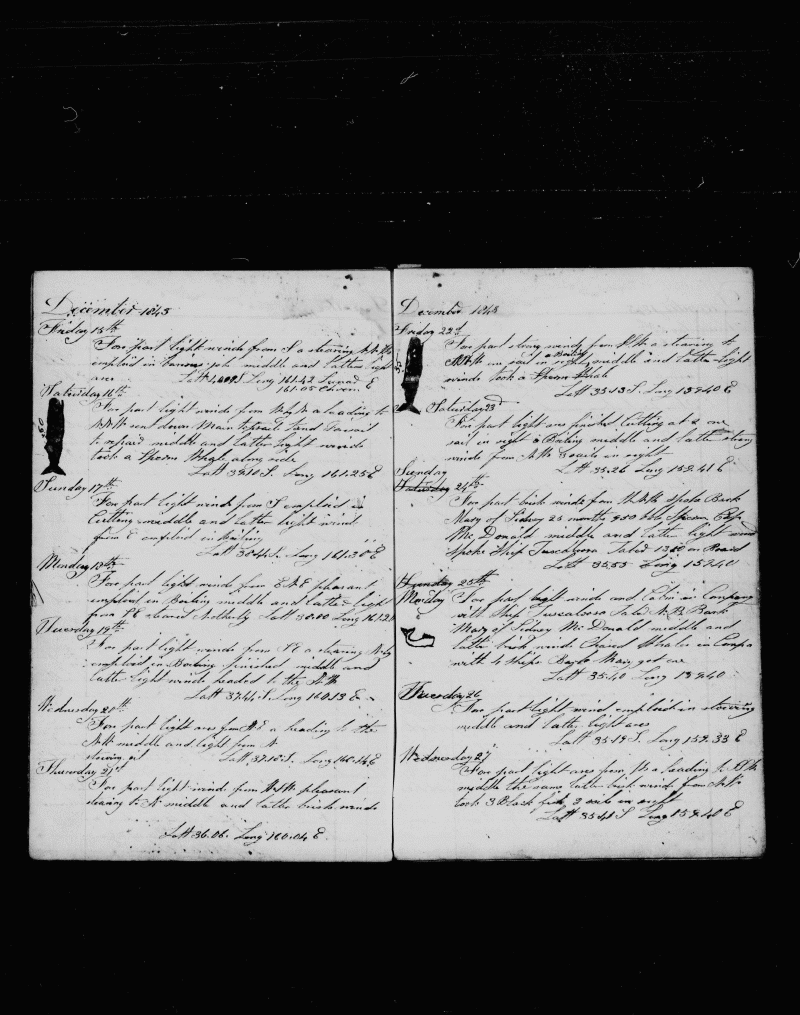 December 1843
Friday 15th
For part light winds from S a stearing
emploid in various job middle and latter light
airs Latt Long 161.43 Lunar E
161.05 Chron
Saturday 16th
For part light winds from a leading to
sent down Main topsail Send Foresail
to repair middle and latter light winds
took a Sperm Whale along side
Latt 38.10 S. Long 161.25 E
Sunday 17th
For part light winds from S emploid in
Cutting middle and latter light wind
from E emploid in boiling
Latt S. Long 161.30 E
Monday 18th
For part light winds from ENE pleasant
emploid in Boiling middle and latter light
from Latt Long
Thursday 19th
For part light winds from a stearing
emploid in Boiling finished middle and
latter light winds headed to the
Latt 37.44 S. Long 160.13 E
Wednesday 20th
For part light ares from a heading to the
middle and light from N
Latt 37.10 S. Long E
Thursday 21st
For part light winds from pleasant
stearing to N middle and latter brisk winds
Latt 36.06. Long 160.04 E
December 1843
Friday 22d
For part strong winds from a stearing to
one sail in sight a Boiling middle and latter light
winds took a Sperm Whale
Latt 35.13 S. Long 159.40 E
Saturday 23d
For part light ares finished Cutting at 2 one
sail in sight a Boiling middle and latter strong
winds from sails in sight
Latt 35.26 Long 159.41 E
Sunday
Saturday 24th
For part brisk winds from spoke Bark
Mary of Sidney 25 months 950 bbls Sperm Capt
Mc Donald middle and latter light wind
Spoke Ship Tuscaloosa Taber 1300 on Board
Latt 35.55 Long 159.40
Sunday 25th
Monday For part light winds and Calm in Company
with Ship Tuscaloosa Taber N. B. Bark
Mary of Sidney Mc Donald middle and
latter brisk winds Chased Whales in Compa
with 4 Ships got one
Latt 35.40 Long 159.40
Thuesday 26
For part light wind emploid in stowing
middle and latter light ares
Latt 35.19 S. Long 159.33 E
Wednesday 27
For part light ares from a leading to
middle the same latter brisk winds from
took 3 Black fish 2 sails in sight
Latt 35.41 S Long 159.40 E